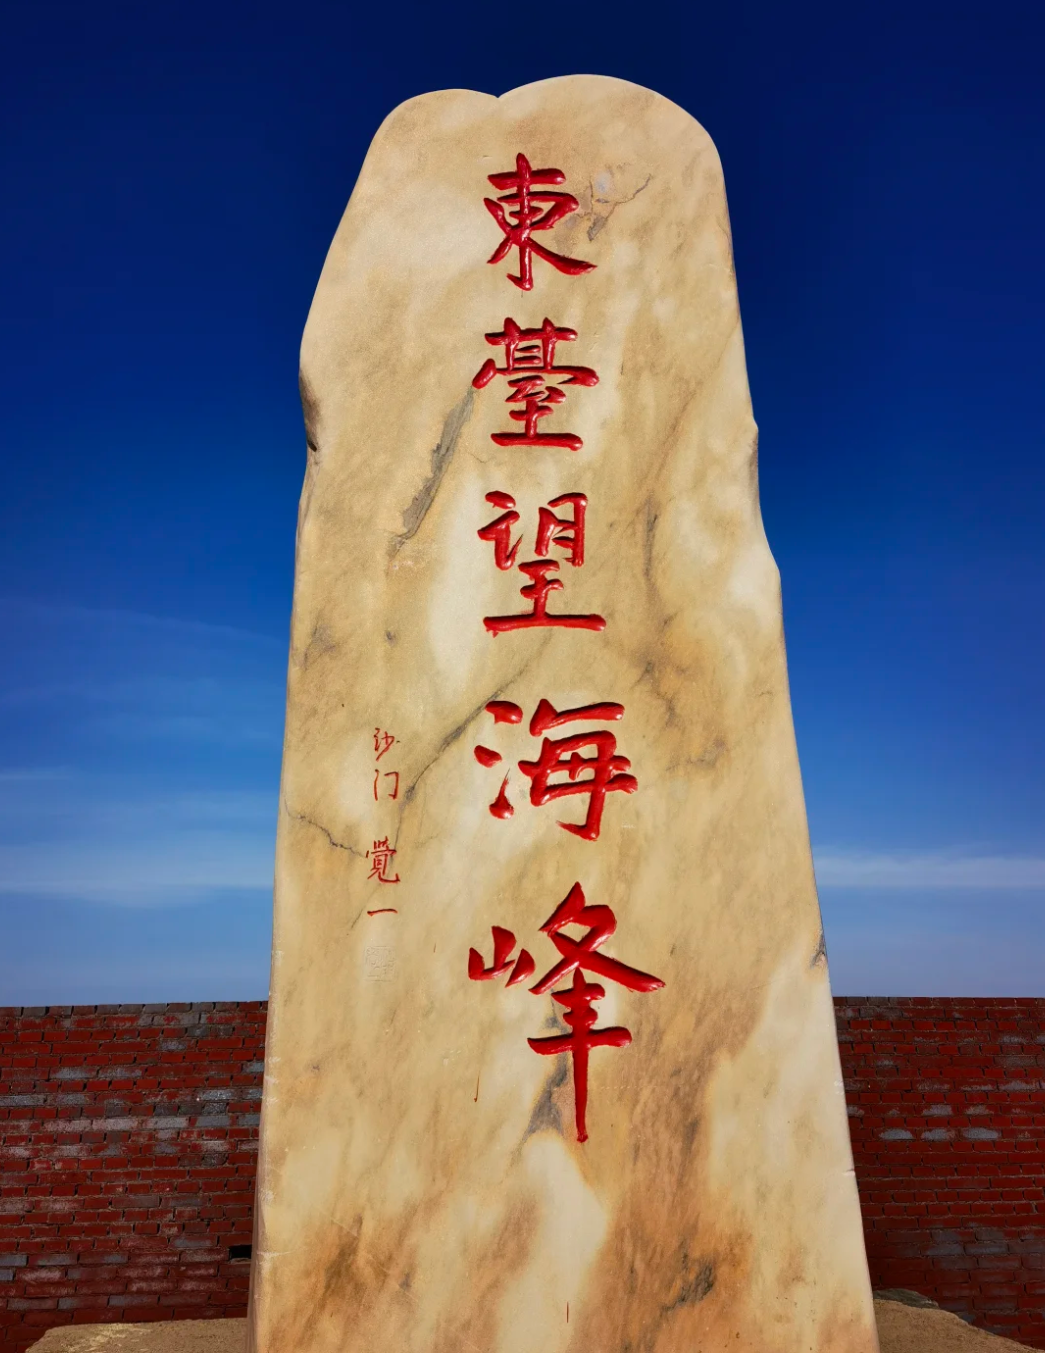 東臺望海峰
沙门 覺一